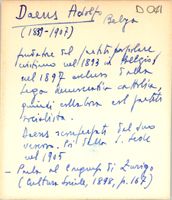 Daens Adolfo D 081
Belga
(1839-1907)
fondatore del partito popolare
cristiano nel 1893 in Belgio
nel 1897 escluso dalla
lega democratica cattolica,
quindi collabora col partito
socialista.
Daens sconfessato dal suo
vescovo. Poi dalla S. Sede
nel 1905
- Parla al congresso di Zurigo
(Cultura Sociale, 1898, p. 167)